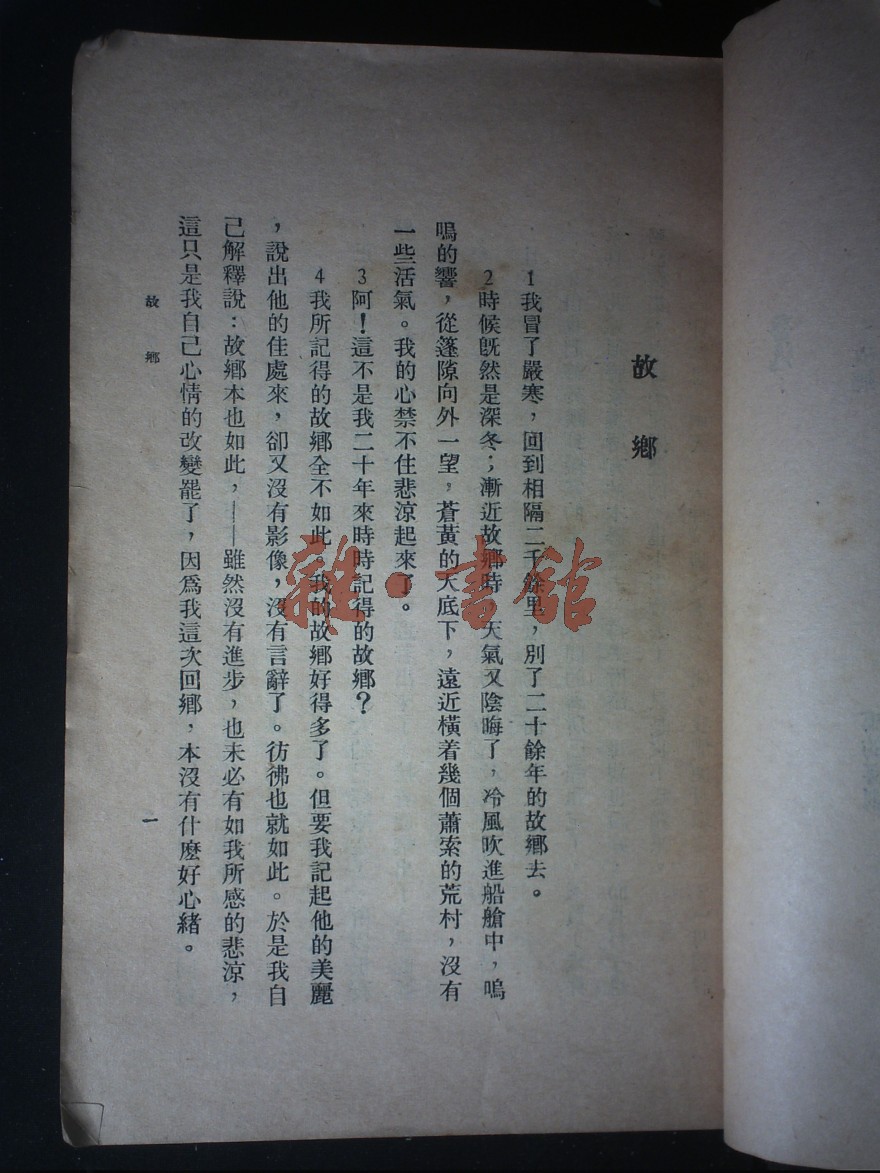 故鄉
1我冒了嚴寒，回到相隔二千餘里，別了二十餘年的故鄉去。
2時候既然是深冬；漸近故鄉時 天氣又陰晦了，冷風吹進船艙中，嗚
嗚的響，從篷隙向外一望，蒼黃的天底下，遠近橫着幾個蕭索的荒村，沒有
一些活氣。我的心禁不住悲涼起來了。
3阿！這不是我二十年來時時記得的故鄉？
4我所記得的故鄉全不如此。我的故鄉好得多了。但要我記起他的美麗
，說出他的佳處來，卻又沒有影像，沒有言辭了。彷彿也就如此。於是我自
己解釋說：故鄉本也如此，——雖然沒有進步，也未必有如我所感的悲涼，
這只是我自己心情的改變罷了，因爲我這次回鄉，本沒有什麽好心緒。
故鄉
一
雜·書館